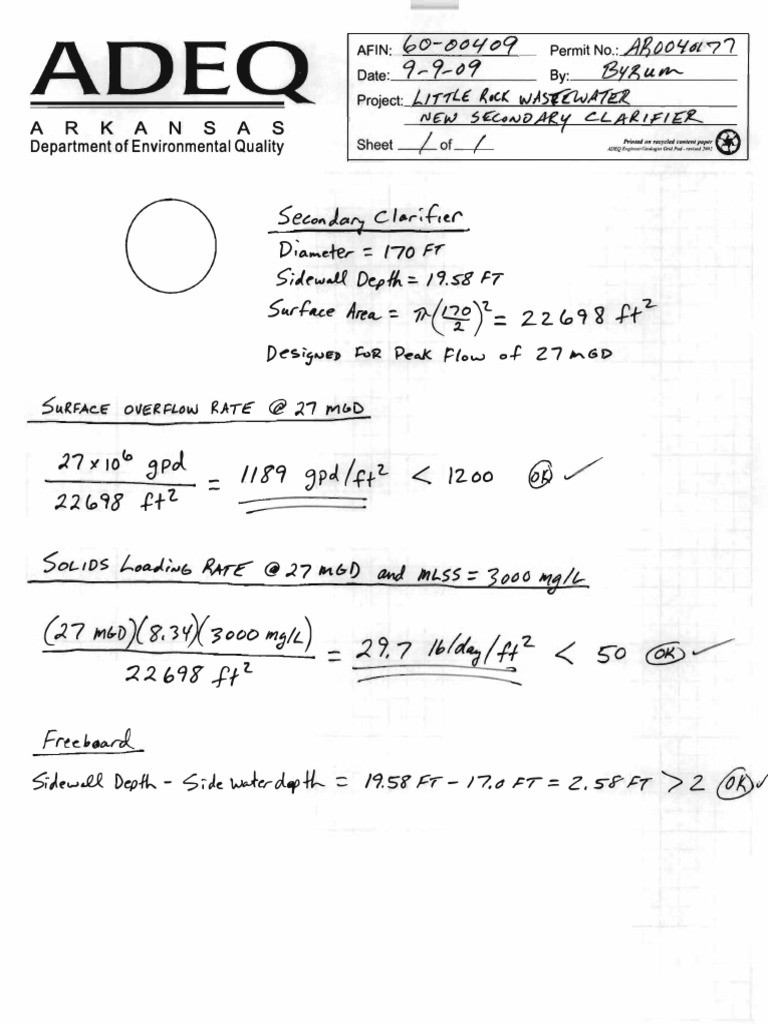 ADEQ
ARKANSAS
Department of Environmental Quality
AFIN: 60-00409 Permit No.: AR0040177
Date: 9-9-09 By: Byrum
Project: LITTLE ROCK WASTEWATER
NEW SECONDARY CLARIFIER
Sheet 1 of 1
Printed on recycled content paper
ADEQ Engineer/Geologist Grid Pad - revised 2002
Secondary Clarifier
Diameter = 170 FT
Sidewall Depth = 19.58 FT
Surface Area = π(170/2)² = 22698 ft²
DESIGNED FOR Peak Flow of 27 MGD
SURFACE OVERFLOW RATE @ 27 MGD
27 x 10⁶ gpd / 22698 ft² = 1189 gpd/ft² < 1200 OK ✓
SOLIDS Loading RATE @ 27 MGD and MLSS = 3000 mg/L
(27 MGD)(8.34)(3000 mg/L) / 22698 ft² = 29.7 lb/day/ft² < 50 OK ✓
Freeboard
Sidewall Depth - Side water depth = 19.58 FT - 17.0 FT = 2.58 FT > 2 OK ✓